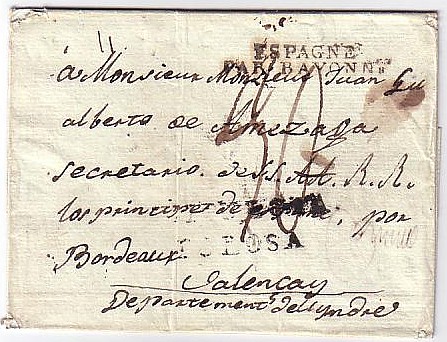 ESPAGNE
PAR BAYONNE
à Monsieur Monsieur Juan Gu
alberto de Amezaga
secretario de SS. AA. R. R.
los principes de por
TOLOSA
Bordeaux
Valençay
Departement de l'yndre